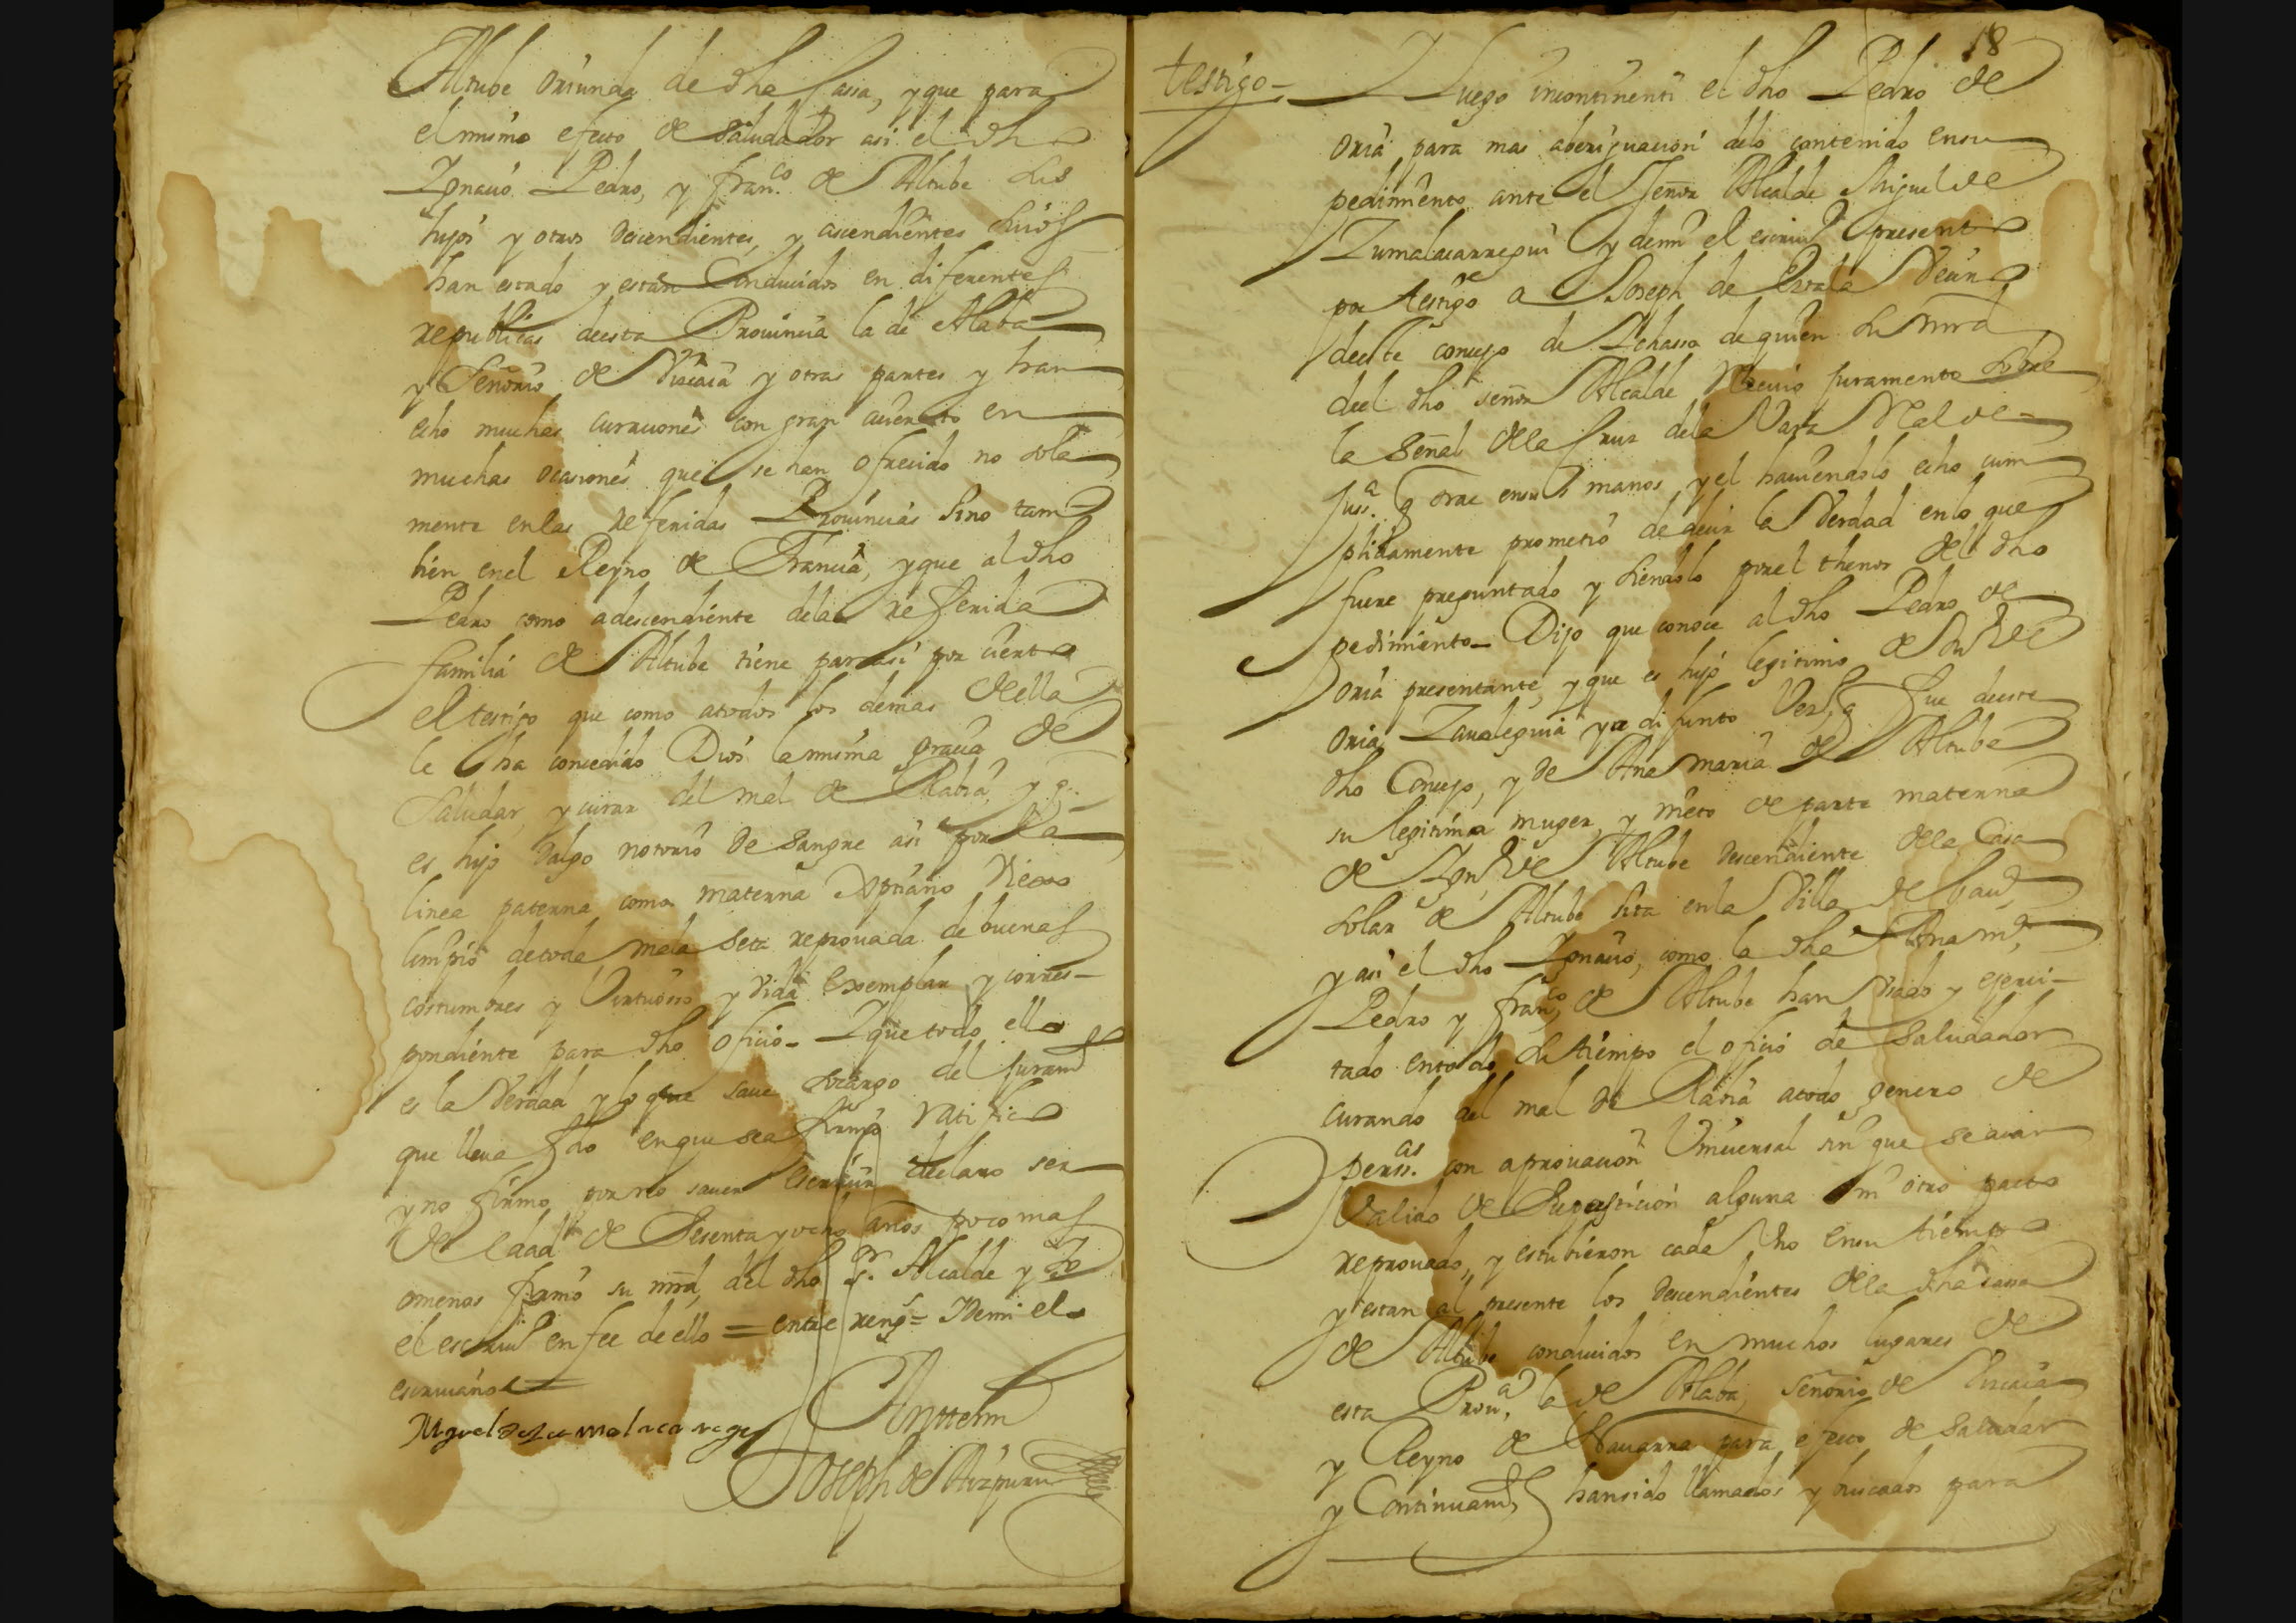 Altube oriunda de dha Cassa, y que para
el mismo efecto de saludador asi el dho
Ygnacio Pedro, y Fran.co de Altube sus
hijos y otros descendientes, y ascendientes suios
han estado y estan Conducidos en diferentes
republicas deesta Prouincia la de Alaba
y Señorio de Viscaia y otras partes y han
echo muchas curaciones con gran acierto en
muchas ocasiones que se han ofrecido no sola
mente enlas referidas Prouincias Sino tam
bien enel Reyno de Francia, y que al dho
Pedro como adescendiente dela referida
familia de Altube tiene parasi por cierto
el testigo que como atodos los demas deella
le ha concedido Dios la misma gracia de
Saludar, y curar del mal de Rabia, y q.
es hijo dalgo notorio de sangre asi por la
linea paterna como materna Xptiano Viexo
limpio detoda mala seta reprouada de buenas
costumbres y Virtuoso y vida exemplar y corres-
pondiente para dho oficio- Y que todo ello
es la Verdad y lo que saue socargo del juramto
que lleua fho en que sea firmo ratifico
y no firmo por no sauer escriuir declaro ser
de edad de Sesenta y ocho años poco mas
omenos firmo su mrd, del dho s.r Alcalde y Yo
el escriuo en fee de ello = entre reng.s = Ydemi el
escriuano =
Miguel de Zumalacarregui
Anttemi
Joseph de Aizpuru
18
testigo-
Y Luego incontinenti el dho Pedro de
Oria para mas aberiguacion delo contenido ensu
pedimiento ante el Señor Alcalde Miguel de
Zumalacarregui y demi el escriuo presento
por testigo a Joseph de Veçin
deeste concejo de Ychasso de quien su mrd
deel dho señor Alcalde Reciuio juramento sobre
la señal dela Cruz dela Vara Real de
Juss.a q trae ensus manos y el hauiendolo echo cum
plidamente prometio de decir la Verdad enlo que
fuere preguntado y siendolo porel thenor del dho
pedimiento- Dijo que conoce al dho Pedro de
Oria presentante, y que es hijo legitimo de Ju de
Oria Zaualeguia ya difunto Vez.o q fue deeste
dho Concejo, y de Ana maria de Altube
su legitima muger, y nieto de parte materna
de Ygn.o de Altube descendiente dela Casa
solar de Altube sita enla Villa de
y asi el dho Ygnacio, como la dha Ana m.a,
Pedro y Fran.co de Altube han vsado y exerci-
tado entodo su tiempo el oficio de Saludador
curando del mal de Rabia atodo genero de
perss.as con aprouacion Vniuersal sin que se aian
Valido de Supersticion alguna ni otro pacto
reprouado, y estubieron cada Vno ensu tiempo
y estan al presente los descendientes dela dha cassa
de Altube conducidos en muchos lugares de
esta Prou.a la de Alaba, señorio de Viscaia
y Reyno de Nauarra para efecto de saludar
y Continuamte hansido llamados y buscados para